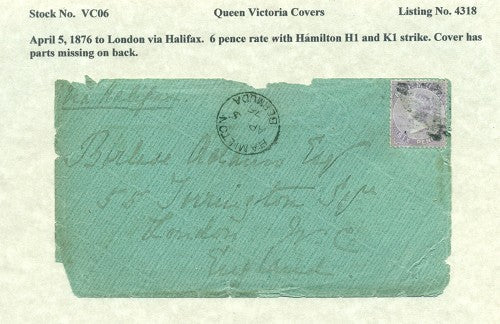 Stock No. VC06 Queen Victoria Covers Listing No. 4318
April 5, 1876 to London via Halifax. 6 pence rate with Hamilton H1 and K1 strike. Cover has
parts missing on back.
via Halifax
HAMILTON BERMUDA
AP 5
76
Esq
55 Torrington Sqre
London W.C.
England